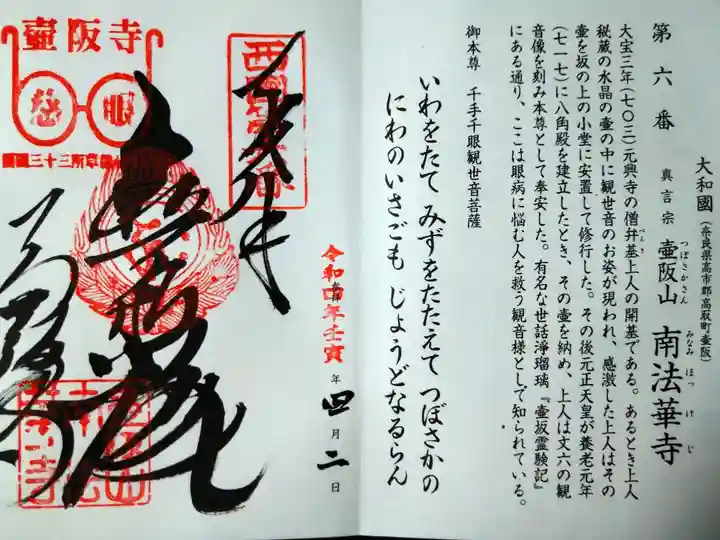 第六番
大和國（奈良県高市郡高取町壷阪）
真言宗 壷阪山 南法華寺
つぼさかさん みなみ ほっ け じ
大宝三年（七〇三）元興寺の僧弁基上人の開基である。あるとき上人
べんき
秘蔵の水晶の壷の中に観世音のお姿が現われ、感激した上人はその
壷を坂の上の小堂に安置して修行した。その後元正天皇が養老元年
（七一七）に八角殿を建立したとき、その壷を納め、上人は丈六の観
音像を刻み本尊として奉安した。有名な世話浄瑠璃『壷坂霊験記』
にある通り、ここは眼病に悩む人を救う観音様として知られている。
御本尊 千手千眼観世音菩薩
いわをたて みずをたたえて つぼさかの
にわのいさごも じょうどなるらん
壷阪寺
慈眼
令和四年壬寅
年四月二日